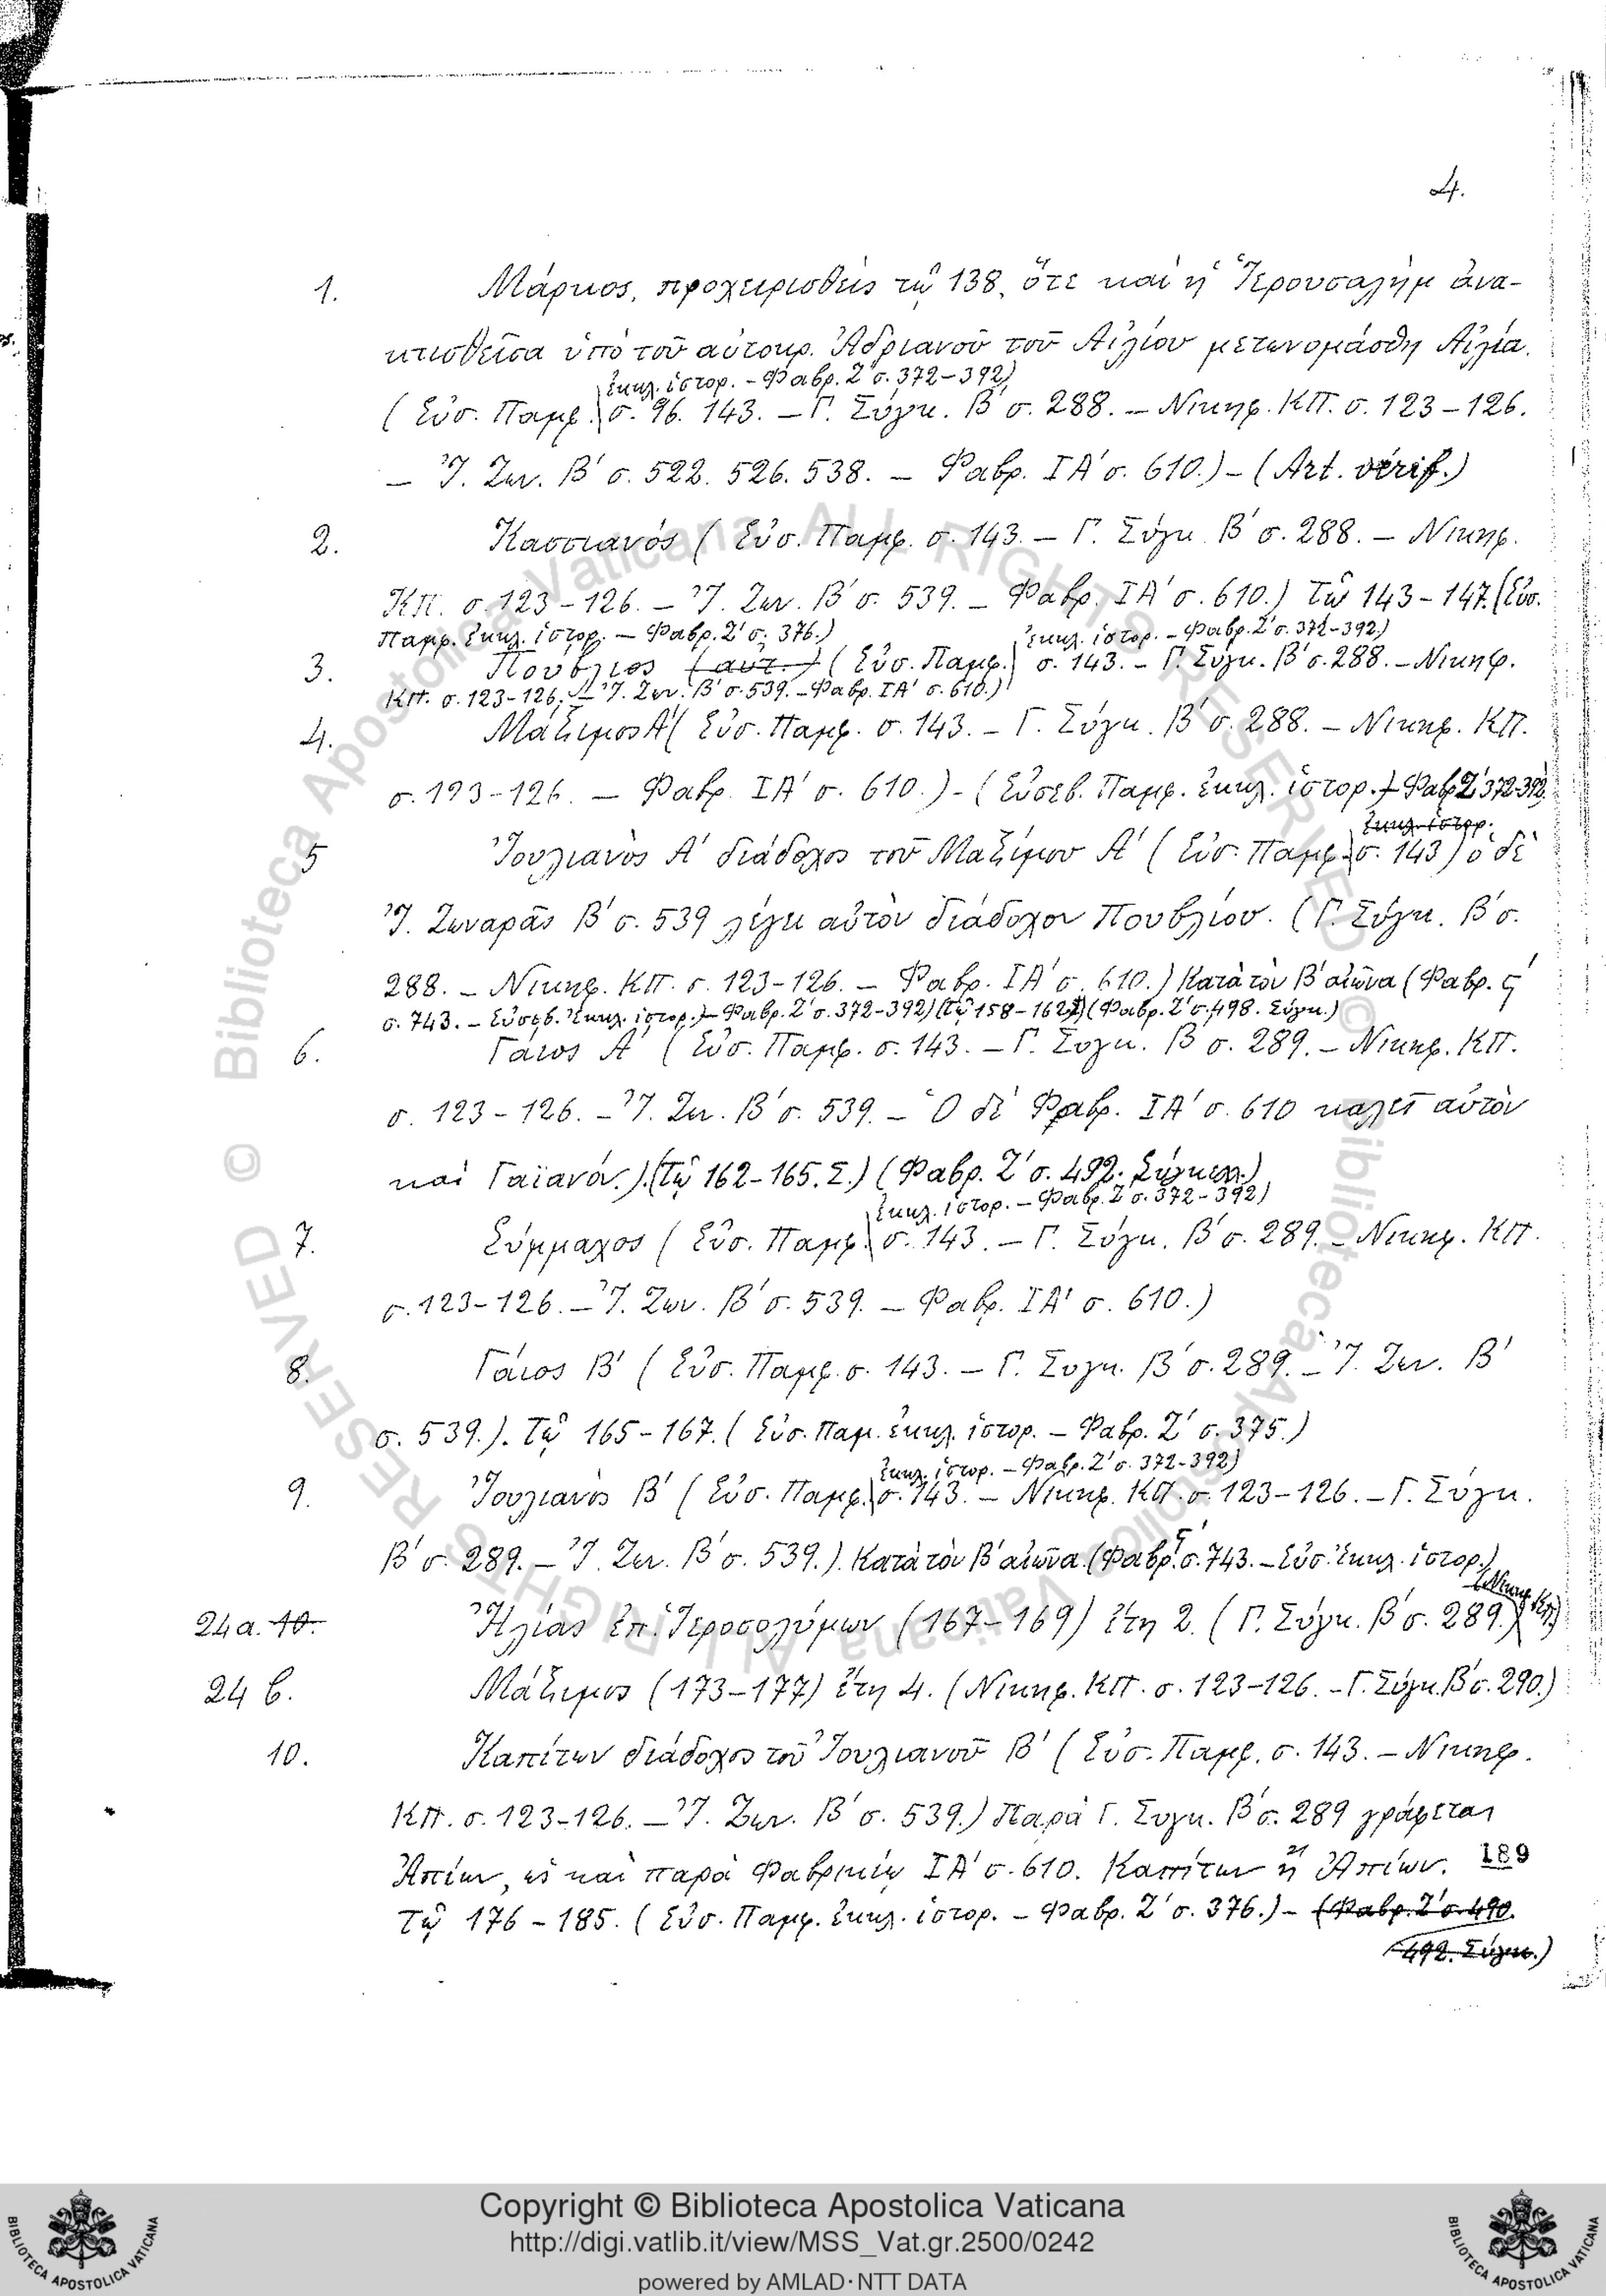 4.
1. Μάρκος, προχειρισθεὶς τῷ 138, ὅτε καὶ ἡ Ἱερουσαλὴμ ἀνα-
κτισθεῖσα ὑπὸ τοῦ αὐτοκρ. Ἀδριανοῦ τοῦ Αἰλίου μετωνομάσθη Αἰλία.
ἐκκλ. ἱστορ. – Φαβρ. Ζ΄ σ. 372–392)
(Εὐσ. Παμφ. σ. 96. 143. – Γ. Σύγκ. Β΄ σ. 288. – Νικηφ. ΚΠ. σ. 123–126.
– Ἰ. Ζων. Β΄ σ. 522. 526. 538. – Φαβρ. ΙΑ΄ σ. 610.) – (Art. vérif.)
2. Κασσιανός (Εὐσ. Παμφ. σ. 143. – Γ. Σύγκ. Β΄ σ. 288. – Νικηφ.
ΚΠ. σ. 123–126. – Ἰ. Ζων. Β΄ σ. 539. – Φαβρ. ΙΑ΄ σ. 610.) Τῷ 143–147. (Εὐσ.
Παμφ. ἐκκλ. ἱστορ. – Φαβρ. Ζ΄ σ. 376.)
ἐκκλ. ἱστορ. – Φαβρ. Ζ΄ σ. 372–392)
3. Πούβλιος (αὐτ.) (Εὐσ. Παμφ. σ. 143. – Γ. Σύγκ. Β΄ σ. 288. – Νικηφ.
ΚΠ. σ. 123–126. – Ἰ. Ζων. Β΄ σ. 539. – Φαβρ. ΙΑ΄ σ. 610.)
4. Μάξιμος Α΄ (Εὐσ. Παμφ. σ. 143. – Γ. Σύγκ. Β΄ σ. 288. – Νικηφ. ΚΠ.
σ. 123–126. – Φαβρ. ΙΑ΄ σ. 610.) – (Εὐσεβ. Παμφ. ἐκκλ. ἱστορ. – Φαβρ. Ζ΄ 372–392)
ἐκκλ. ἱστορ.
5 Ἰουλιανὸς Α΄ διάδοχος τοῦ Μαξίμου Α΄ (Εὐσ. Παμφ. σ. 143) ὁ δὲ
Ἰ. Ζωναρᾶς Β΄ σ. 539 λέγει αὐτὸν διάδοχον Πουβλίου. (Γ. Σύγκ. Β΄ σ.
288. – Νικηφ. ΚΠ. σ. 123–126. – Φαβρ. ΙΑ΄ σ. 610.) Κατὰ τὸν Β΄ αἰῶνα (Φαβρ. ϛ΄
σ. 743. – Εὐσεβ. Ἐκκλ. ἱστορ.) – Φαβρ. Ζ΄ σ. 372–392) (τῷ 158–162) (Φαβρ. Ζ΄ σ. 498. Σύγκ.)
6. Γάιος Α΄ (Εὐσ. Παμφ. σ. 143. – Γ. Συγκ. Β΄ σ. 289. – Νικηφ. ΚΠ.
σ. 123–126. – Ἰ. Ζων. Β΄ σ. 539. – Ὁ δὲ Φαβρ. ΙΑ΄ σ. 610 καλεῖ αὐτὸν
καὶ Γαϊανόν.) (Τῷ 162–165. Σ.) (Φαβρ. Ζ΄ σ. 492. Σύγκελ.)
ἐκκλ. ἱστορ. – Φαβρ. Ζ΄ σ. 372–392)
7. Σύμμαχος (Εὐσ. Παμφ. σ. 143. – Γ. Σύγκ. Β΄ σ. 289. – Νικηφ. ΚΠ.
σ. 123–126. – Ἰ. Ζων. Β΄ σ. 539. – Φαβρ. ΙΑ΄ σ. 610.)
8. Γάιος Β΄ (Εὐσ. Παμφ. σ. 143. – Γ. Συγκ. Β΄ σ. 289. – Ἰ. Ζων. Β΄
σ. 539.). Τῷ 165–167. (Εὐσ. Παμ. ἐκκλ. ἱστορ. – Φαβρ. Ζ΄ σ. 375.)
ἐκκλ. ἱστορ. – Φαβρ. Ζ΄ σ. 372–392)
9. Ἰουλιανὸς Β΄ (Εὐσ. Παμφ. σ. 143. – Νικηφ. ΚΠ. σ. 123–126. – Γ. Σύγκ.
Β΄ σ. 289. – Ἰ. Ζων. Β΄ σ. 539.). Κατὰ τὸν Β΄ αἰῶνα. (Φαβρ. ϛ΄ σ. 743. – Εὐσ. Ἐκκλ. ἱστορ.)
24a. 10. Ἠλίας ἐπ. Ἱεροσολύμων (167–169) ἔτη 2. (Γ. Σύγκ. Β΄ σ. 289.) (Νικηφ. ΚΠ)
24 b. Μάξιμος (173–177) ἔτη 4. (Νικηφ. ΚΠ. σ. 123–126. – Γ. Σύγκ. Β΄ σ. 290.)
10. Καπίτων διάδοχος τοῦ Ἰουλιανοῦ Β΄ (Εὐσ. Παμφ. σ. 143. – Νικηφ.
ΚΠ. σ. 123–126. – Ἰ. Ζων. Β΄ σ. 539.) Παρὰ Γ. Συγκ. Β΄ σ. 289 γράφεται
Ἀπίων, ὡς καὶ παρὰ Φαβρικίῳ ΙΑ΄ σ. 610. Καπίτων ἢ Ἀπίων. 189
Τῷ 176–185. (Εὐσ. Παμφ. ἐκκλ. ἱστορ. – Φαβρ. Ζ΄ σ. 376.) – (Φαβρ. Ζ΄ σ. 490.
492. Σύγκ.)
© Biblioteca Apostolica Vaticana ALL RIGHTS RESERVED © Biblioteca Apostolica Vaticana ALL RIGHTS RESERVED
Copyright © Biblioteca Apostolica Vaticana
http://digi.vatlib.it/view/MSS_Vat.gr.2500/0242
powered by AMLAD·NTT DATA
BIBLIOTECA APOSTOLICA VATICANA
BIBLIOTECA APOSTOLICA VATICANA